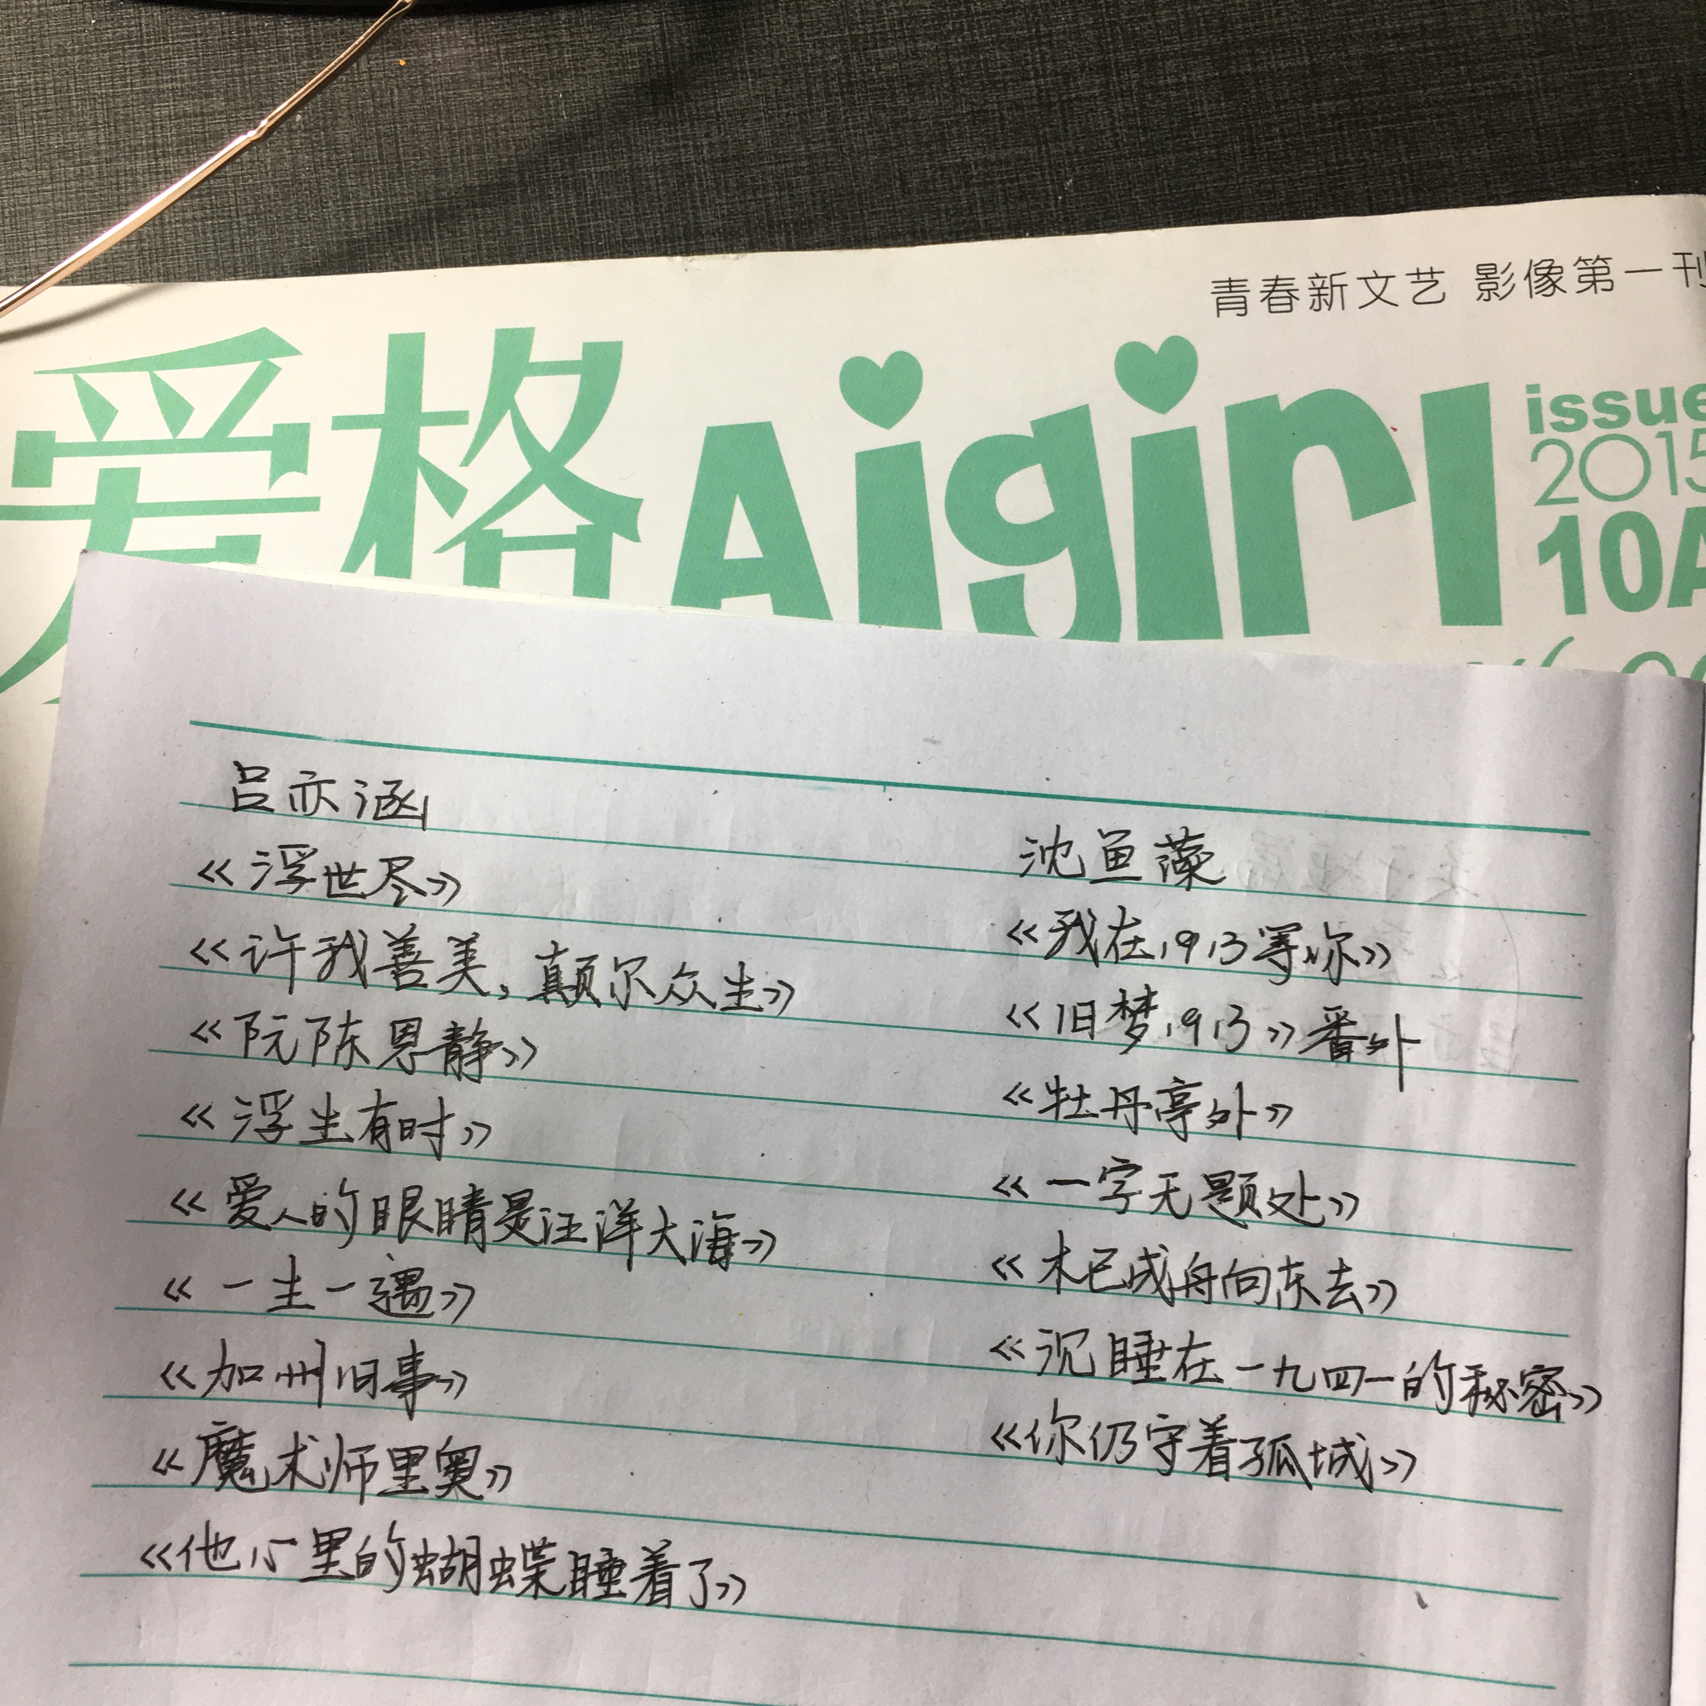 青春新文艺 影像第一刊
爱格 Aigirl
issue
2015
10A
吕亦涵
《浮世尽》
《许我善美，颠尔众生》
《阮陈恩静》
《浮生有时》
《爱人的眼睛是汪洋大海》
《一生一遇》
《加州旧事》
《魔术师里奥》
《他心里的蝴蝶睡着了》
沈鱼藻
《我在1913等你》
《旧梦1913》番外
《牡丹亭外》
《一字无题处》
《木已成舟向东去》
《沉睡在一九四一的秘密》
《你仍守着孤城》